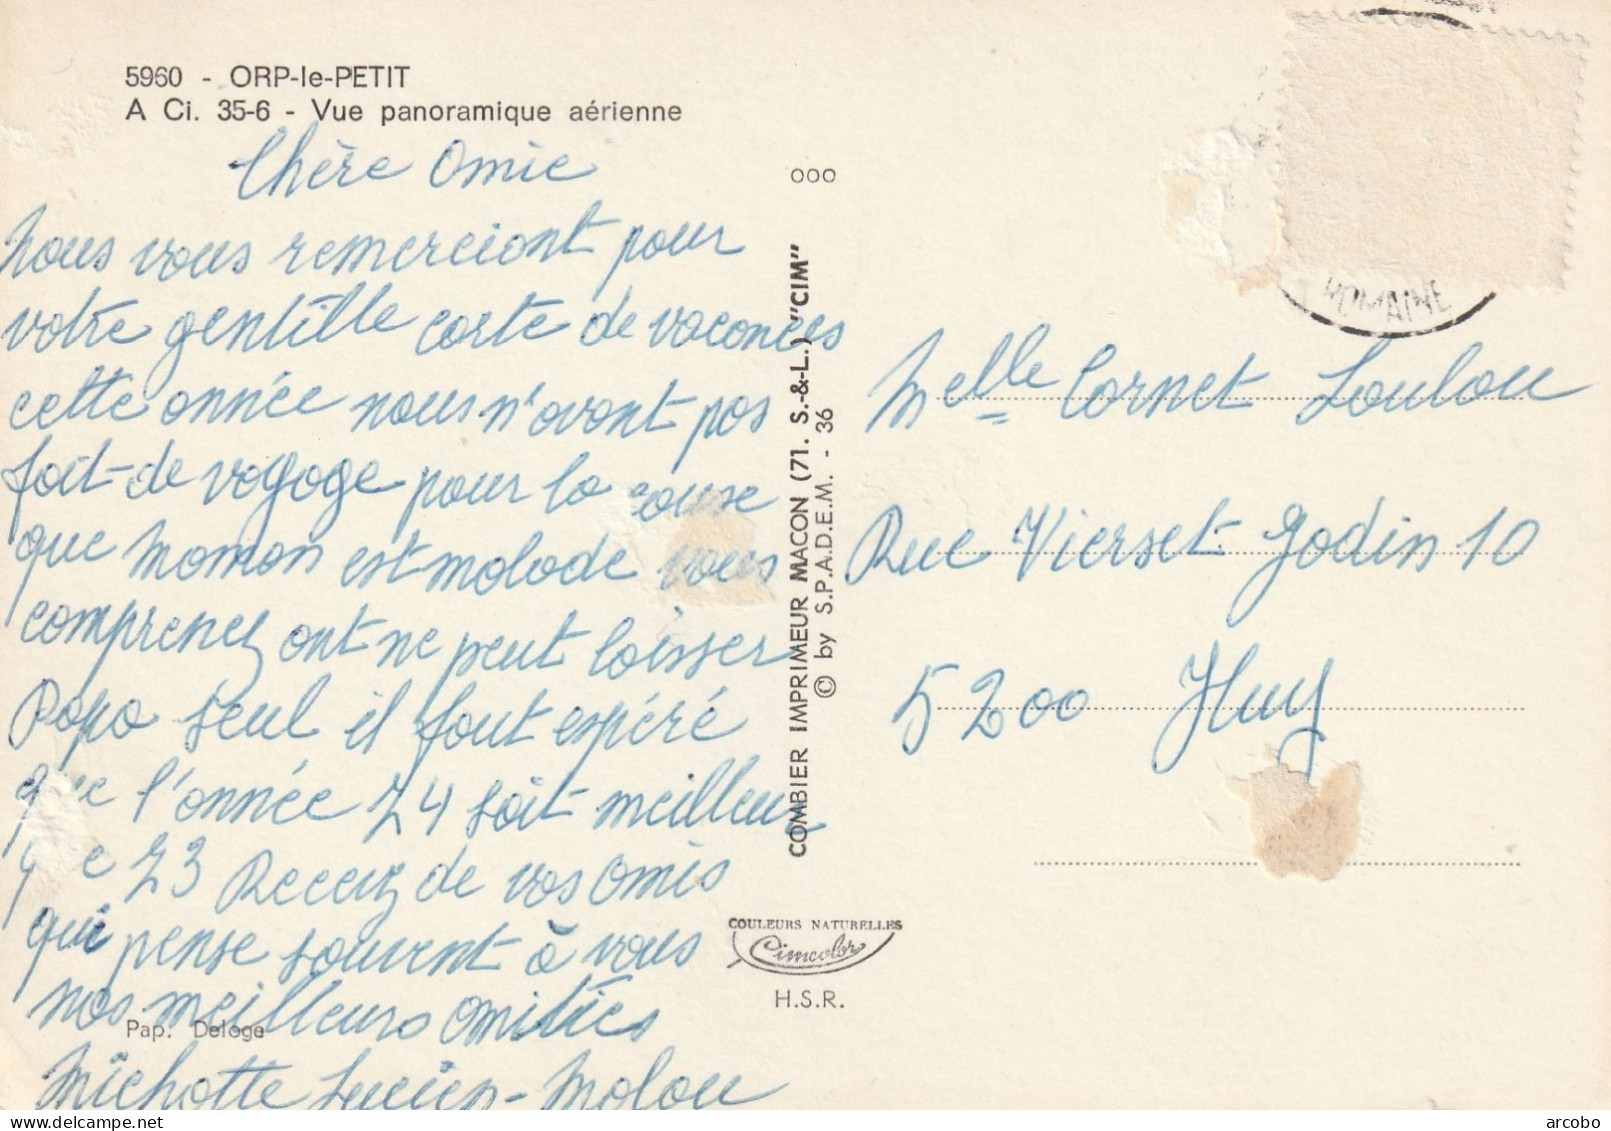 5960 - ORP-le-PETIT
A Ci. 35-6 - Vue panoramique aérienne
Chère Amie
nous vous remerciont pour
votre gentille carte de vacances
cette année nous n'avont pas
fait de voyage pour la cause
que maman est malade vous
comprenez ont ne peut laisser
Papa seul il faut espéré
que l'année 74 soit meilleur
que 73 Recevez de vos amis
qui pense souvent à vous
nos meilleurs amitiés
Michotte Lucien - Malou
Pap. Deloge
ooo
COMBIER IMPRIMEUR MACON (71. S.-&-L.) "CIM"
© by S.P.A.D.E.M. - 36
COULEURS NATURELLES
Cimcolor
H.S.R.
HOMAINE
Melle Cornet Loulou
Rue Vierset-Godin 10
5200 Huy
delcampe.net
arcobo